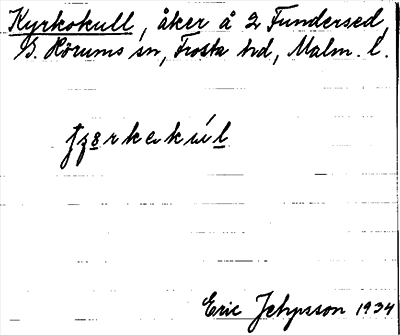 Kyrkokull, åker å 2 Fundersed,
G. Rörums sn, Frosta hd, Malm. l.
Eric Jeppsson 1934